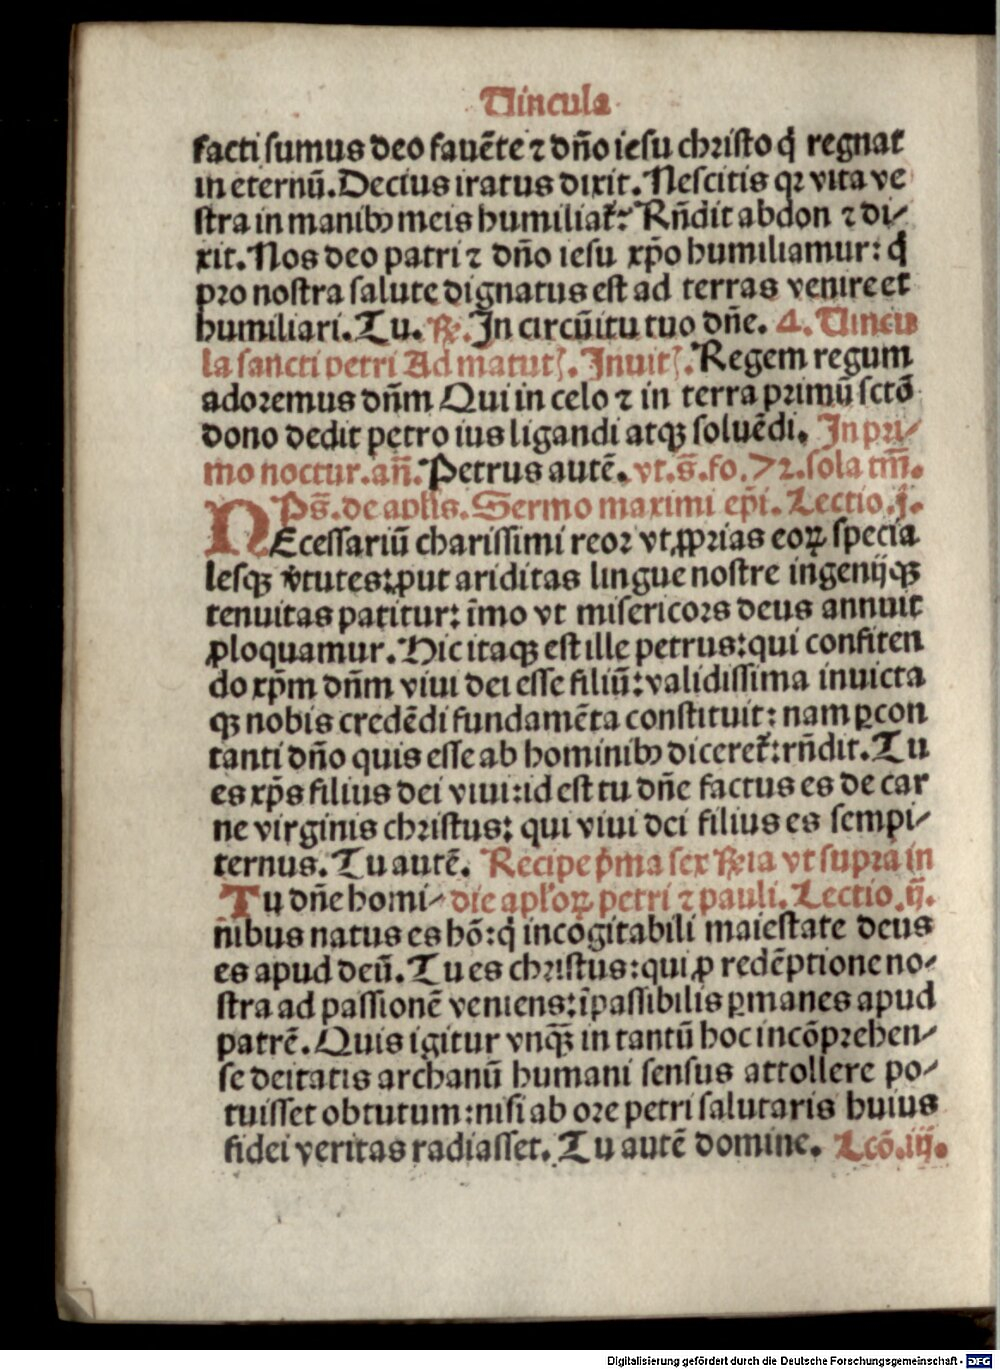 Uincula
facti sumus deo fauēte ⁊ dño iesu christo q̇ regnat
in eternū. Decius iratus dixit. Nescitis qꝛ vita ve
stra in manibꝰ meis humiliat᷑: Rñdit abdon ⁊ di⸗
xit. Nos deo patri ⁊ dño iesu xp̄o humiliamur: q̇
pro nostra salute dignatus est ad terras venire et
humiliari. Tu. ℞. In circūitu tuo dñe. 4. Uincu
la sancti petri Ad matutꝭ. Inuitꝭ. Regem regum
adoremus dñm Qui in celo ⁊ in terra primū sctō
dono dedit petro ius ligandi atqꝫ soluēdi. In pri⸗
mo noctur. añ. Petrus autē. vt. s̄. fo. 72. sola tm̄.
Ps̄. de apl̄is. Sermo maximi ep̄i. Lectio. j.
NEcessariū charissimi reor vt ꝓprias eoꝝ specia
lesqꝫ v̇tutes: ꝓut ariditas lingue nostre ingenijqꝫ
tenuitas patitur: īmo vt misericors deus annuit
ꝓloquamur. Hic itaqꝫ est ille petrus: qui confiten
do xp̄m dñm viui dei esse filiū: validissima inuicta
qꝫ nobis credēdi fundamēta constituit: nam ꝑcon
tanti dño quis esse ab hominibꝰ diceret᷑: rñdit. Tu
es xp̄s filius dei viui: id est tu dñe factus es de car
ne virginis christus: qui viui dei filius es sempi⸗
ternus. Tu autē. Recipe ṗma sex ℞ia vt supra in
Tu dñe homi⸗ die apl̓oꝝ petri ⁊ pauli. Lectio. ij.
nibus natus es hō: q̇ incogitabili maiestate deus
es apud deū. Tu es christus: qui ꝓ redēptione no⸗
stra ad passionē veniens: īpassibilis ꝑmanes apud
patrē. Quis igitur vnqꝫ̄ in tantū hoc incōprehen⸗
se deitatis archanū humani sensus attollere po⸗
tuisset obtutum: nisi ab ore petri salutaris huius
fidei veritas radiasset. Tu autē domine. Lcō. iij.
Digitalisierung gefördert durch die Deutsche Forschungsgemeinschaft - DFG